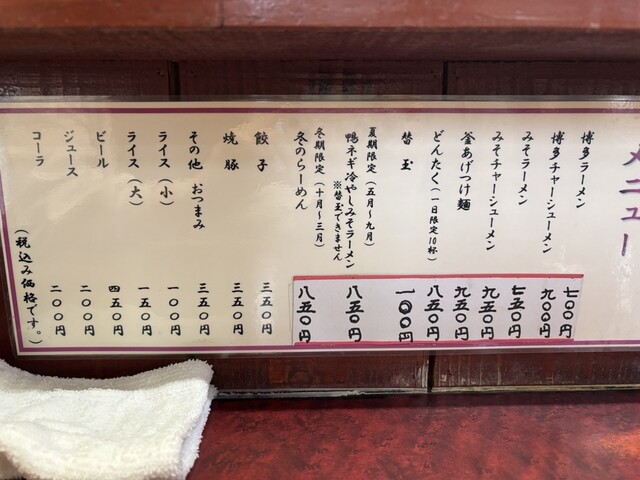 メニュー
博多ラーメン 七〇〇円
博多チャーシューメン 九〇〇円
みそラーメン 七五〇円
みそチャーシューメン 九五〇円
釜あげつけ麺 九五〇円
どんたく（一日限定10杯） 八五〇円
替玉 一〇〇円
夏期限定（五月〜九月）
鴨ネギ冷やしみそラーメン 八五〇円
※替玉できません
冬期限定（十月〜三月）
冬のらーめん 八五〇円
餃子 三五〇円
焼豚 三五〇円
その他 おつまみ 三五〇円
ライス（小） 一〇〇円
ライス（大） 一五〇円
ビール 四五〇円
ジュース 二〇〇円
コーラ 二〇〇円
（税込み価格です。）